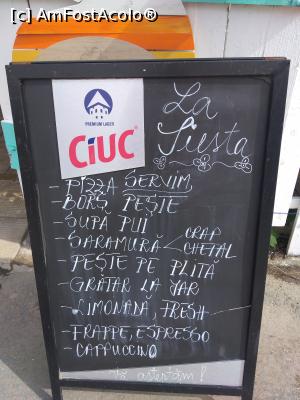 [c] AmFostAcolo®
PREMIUM LAGER
CIUC®
La
Siesta
- PIZZA SERVIM
- BORȘ PEȘTE
- SUPA PUI
- SARAMURĂ < CRAP
CHEFAL
- PEȘTE PE PLITĂ
- GRĂTAR LA JAR
- LIMONADĂ, FRESH
- FRAPPE, ESPRESSO
- CAPPUCCINO
Vă așteptăm!